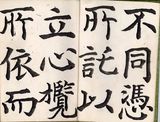 不同憑
所託以
立心攬
所依而